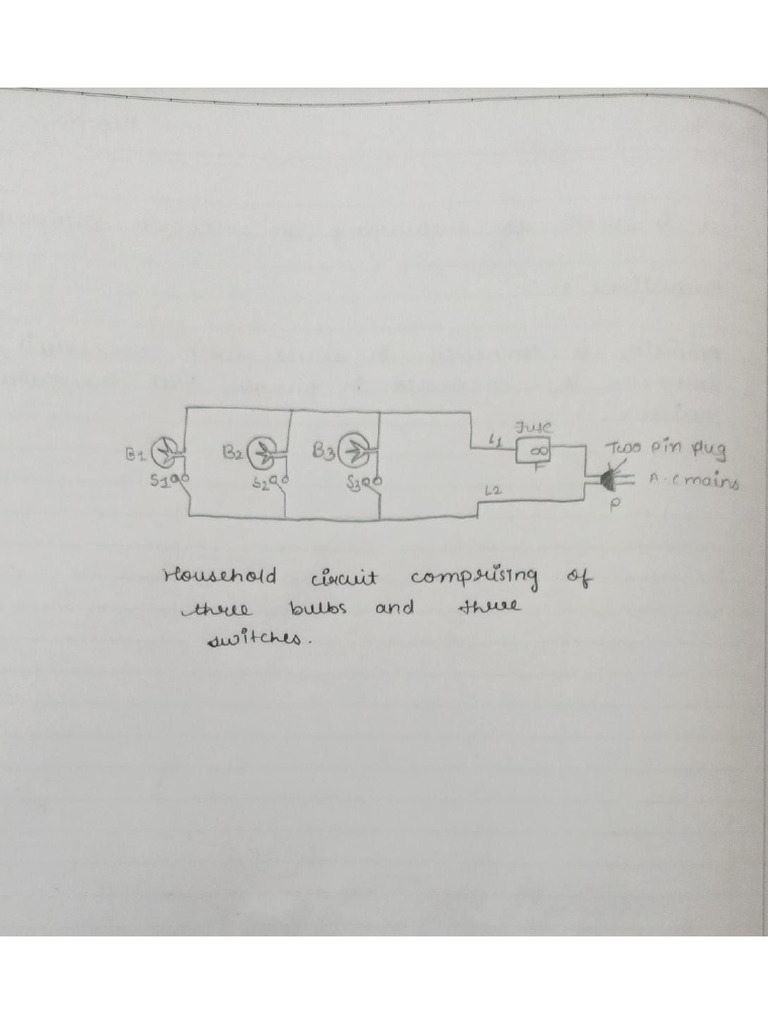 Fuse
L1
B1
B2
B3
Two pin plug
F
S1
S2
S3
A.C mains
L2
P
Household circuit comprising of
three bulbs and three
switches.